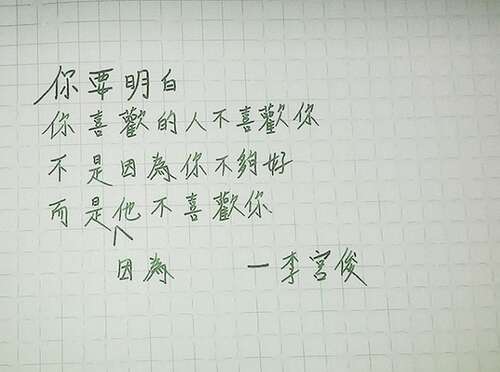 你要明白
你喜歡的人不喜歡你
不是因為你不夠好
而是他不喜歡你
因為 一李宮俊